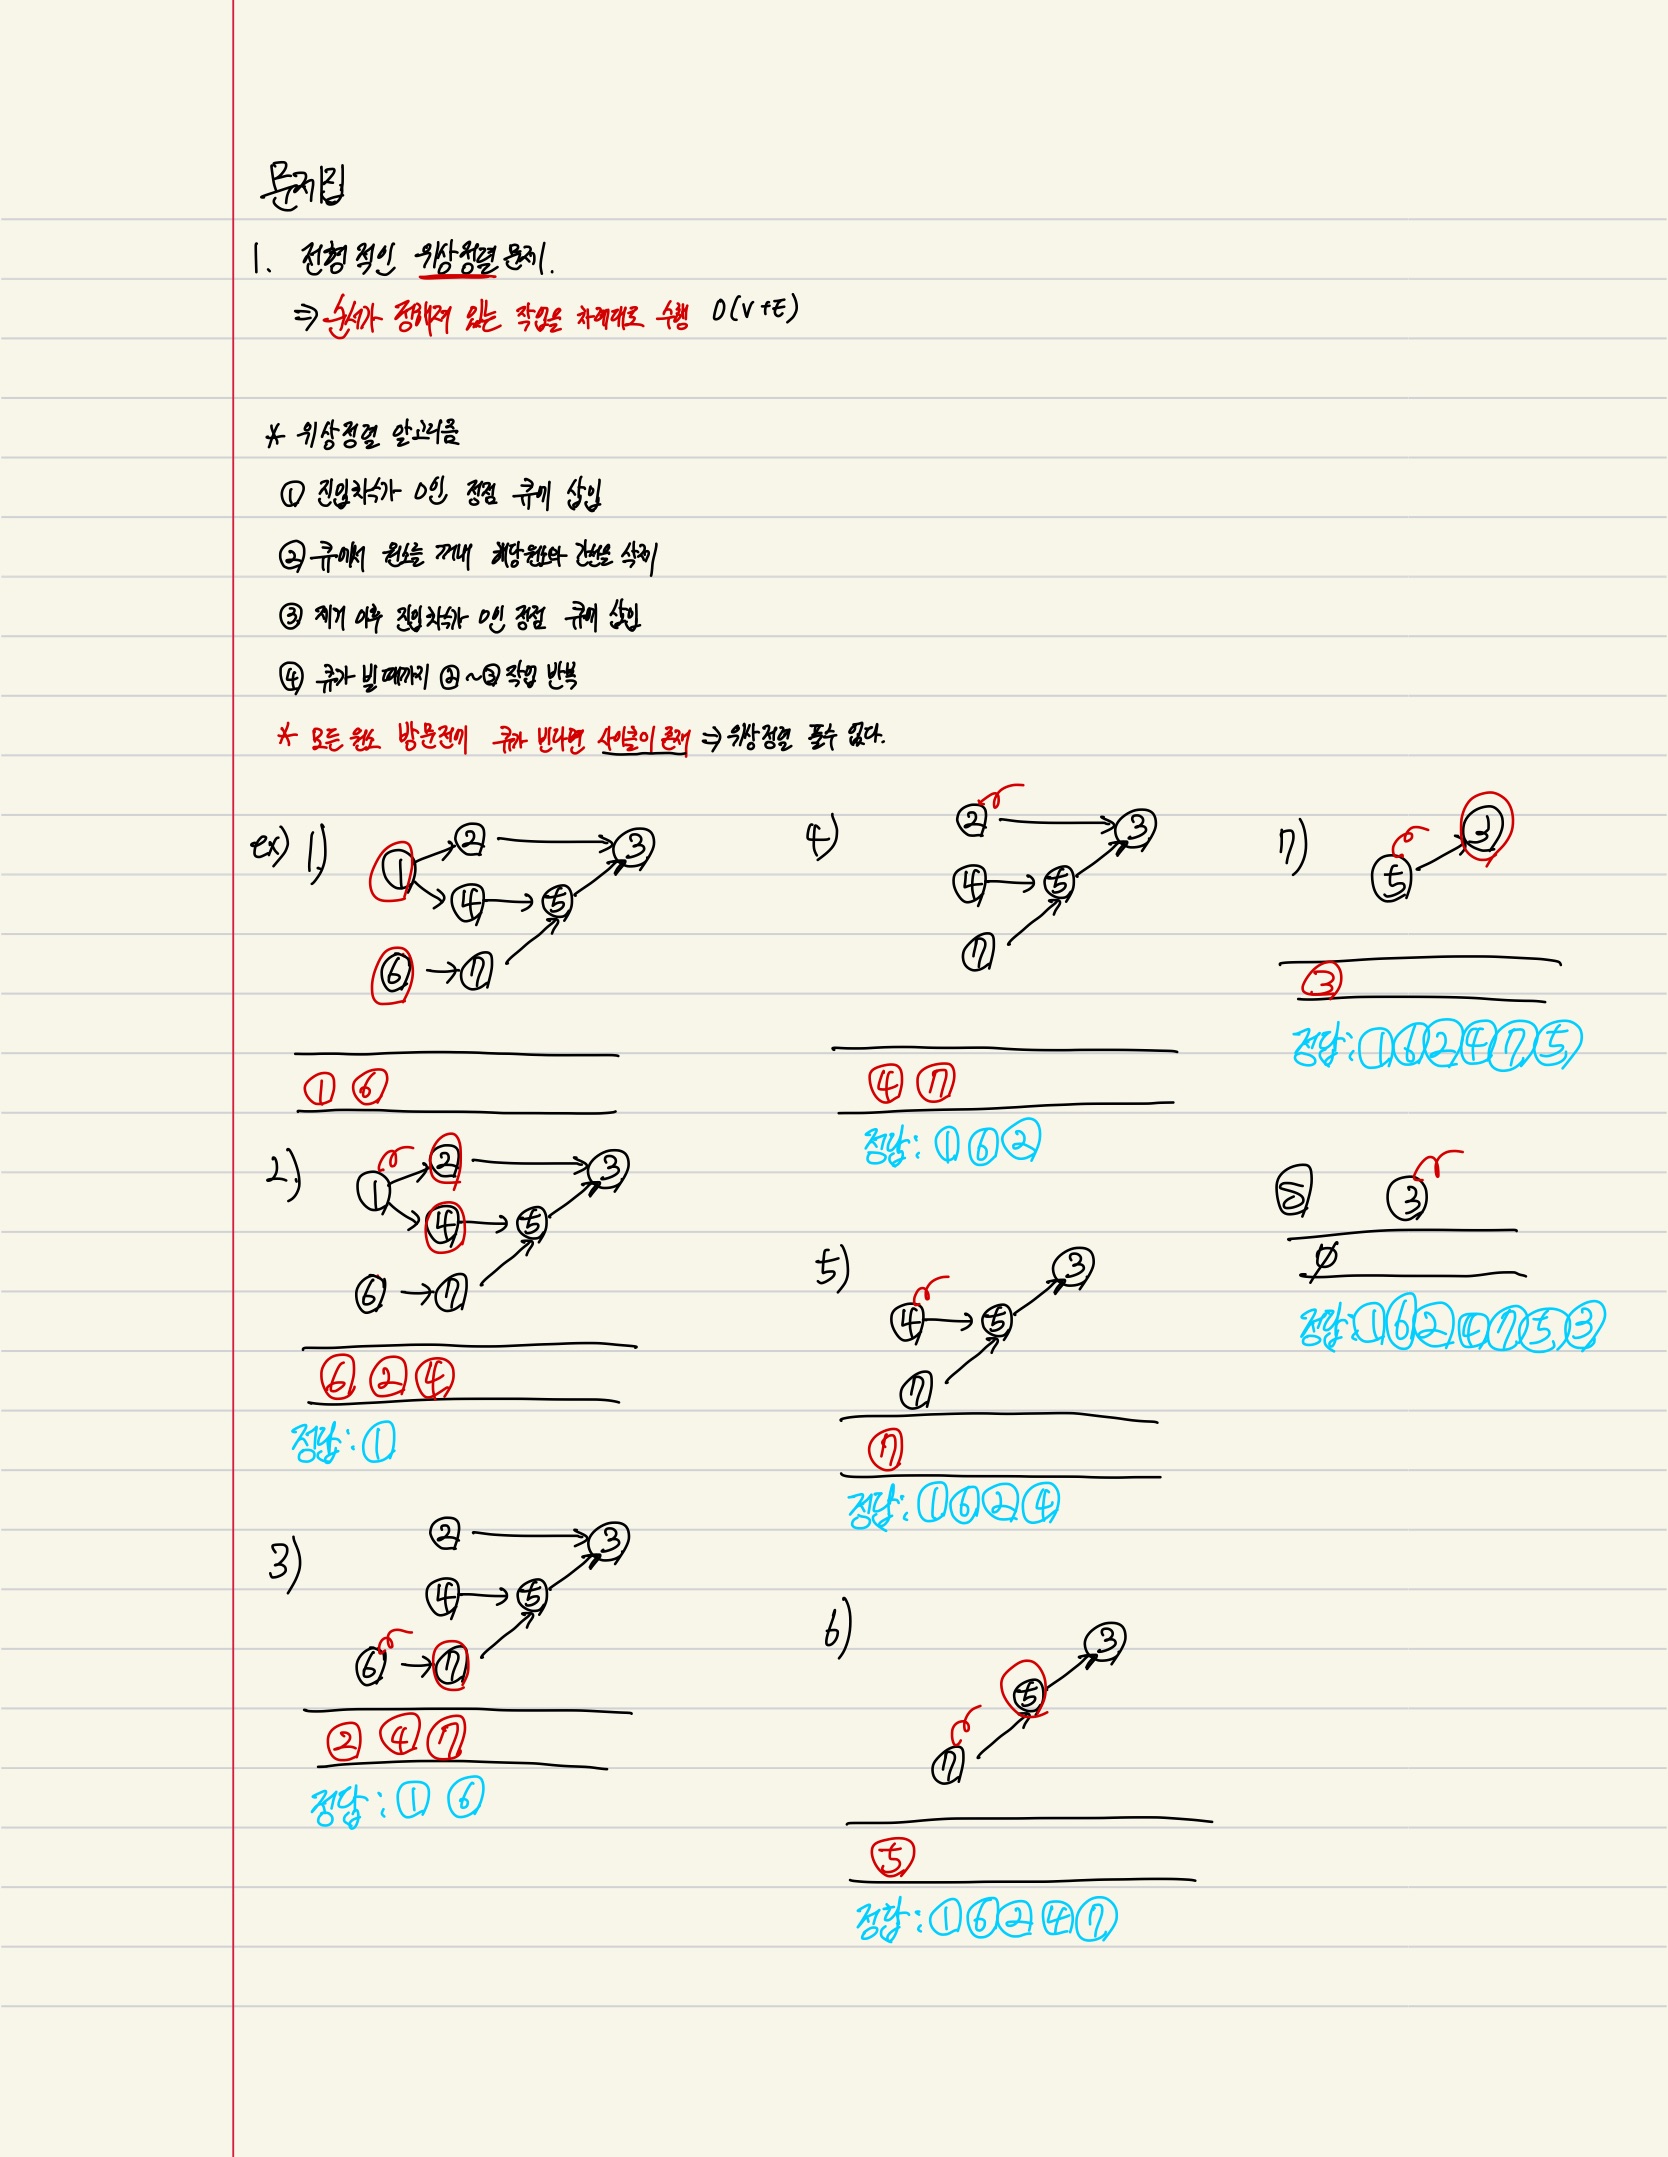 문제집
1. 전형적인 위상정렬 문제.
⇒ 순서가 정해져 있는 작업을 차례대로 수행 O(V+E)
* 위상정렬 알고리즘
① 진입차수가 0인 정점 큐에 삽입
② 큐에서 원소를 꺼내 해당원소와 간선을 삭제
③ 제거 이후 진입차수가 0인 정점 큐에 삽입
④ 큐가 빌 때까지 ②~③ 작업 반복
* 모든 원소 방문전에 큐가 빈다면 사이클이 존재 ⇒ 위상정렬 풀수 없다.
ex) 1.)
② ③
①
④ ⑤
⑥ ⑦
① ⑥
2.)
② ③
①
④ ⑤
⑥ ⑦
⑥ ② ④
정답: ①
3)
② ③
④ ⑤
⑥ ⑦
② ④ ⑦
정답: ① ⑥
4)
② ③
④ ⑤
⑦
④ ⑦
정답: ① ⑥ ②
5)
③
④ ⑤
⑦
⑦
정답: ① ⑥ ② ④
6)
③
⑤
⑦
⑤
정답: ① ⑥ ② ④ ⑦
7)
③
⑤
③
정답: ① ⑥ ② ④ ⑦ ⑤
⑧ ③
∅
정답: ① ⑥ ② ④ ⑦ ⑤ ③